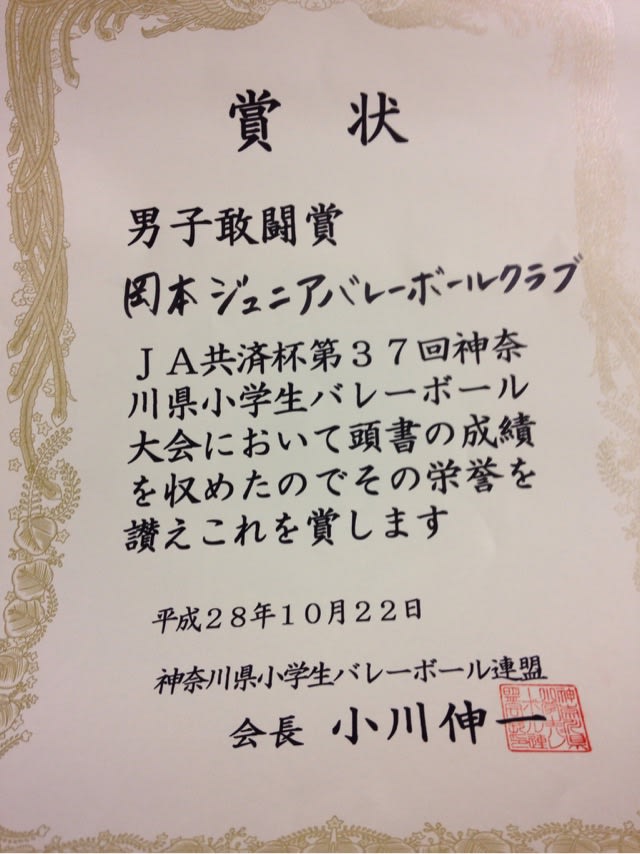 賞状
男子敢闘賞
岡本ジュニアバレーボールクラブ
ＪＡ共済杯第３７回神奈
川県小学生バレーボール
大会において頭書の成績
を収めたのでその栄誉を
讃えこれを賞します
平成２８年１０月２２日
神奈川県小学生バレーボール連盟
会長 小川伸一